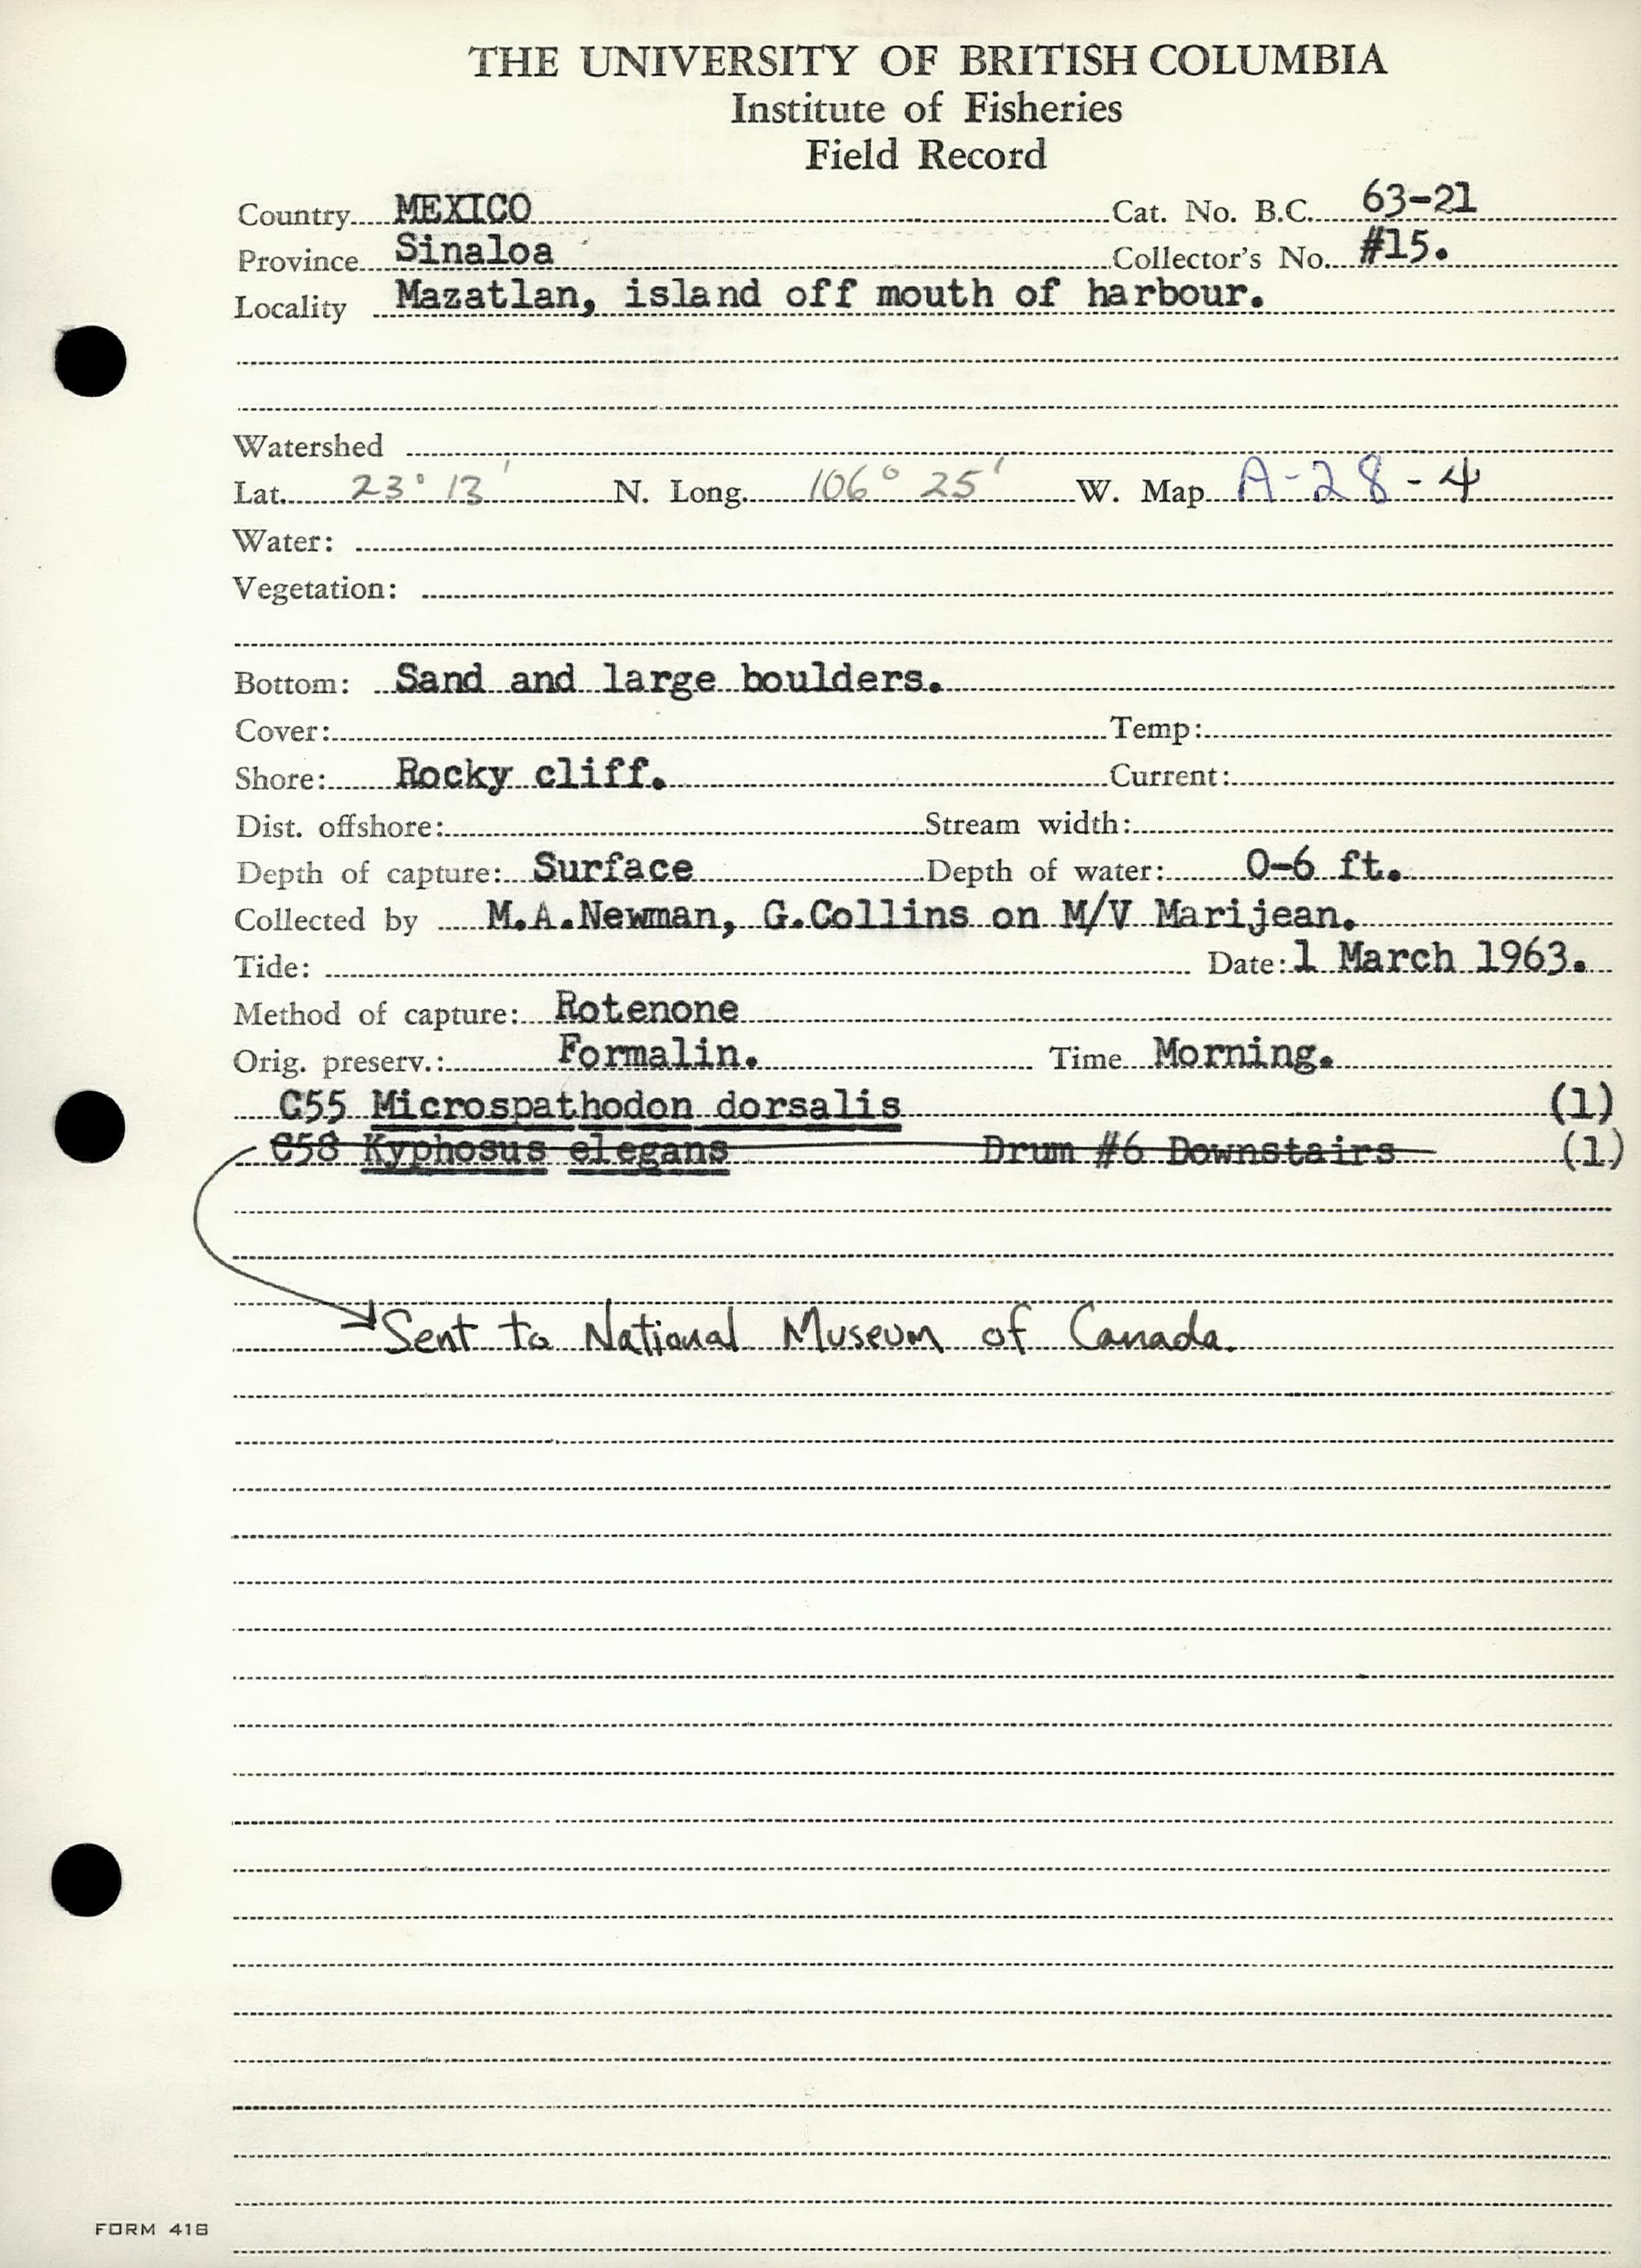 THE UNIVERSITY OF BRITISH COLUMBIA
Institute of Fisheries
Field Record
Country MEXICO Cat. No. B.C. 63-21
Province Sinaloa Collector's No. #15.
Locality Mazatlan, island off mouth of harbour.
Watershed
Lat. 23° 13' N. Long. 106° 25' W. Map A-28-4
Water:
Vegetation:
Bottom: Sand and large boulders.
Cover: Temp:
Shore: Rocky cliff. Current:
Dist. offshore: Stream width:
Depth of capture: Surface Depth of water: 0-6 ft.
Collected by M.A.Newman, G.Collins on M/V Marijean.
Tide: Date: 1 March 1963.
Method of capture: Rotenone
Orig. preserv.: Formalin. Time Morning.
C55 Microspathodon dorsalis (1)
C58 Kyphosus elegans Drum #6 Downstairs (1)
Sent to National Museum of Canada.
FORM 418